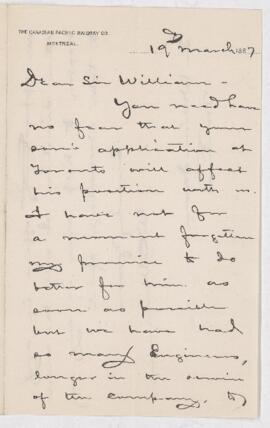 THE CANADIAN PACIFIC RAILWAY CO.
MONTREAL.
19th March, 1887
Dear Sir William -
You need have
no fear that your
son's application at
Toronto will affect
his position with us.
I have not for
a moment forgotten
my promise to do
better for him as
soon as possible
but we have had
so many Engineers,
longer in the service
of the Company, to